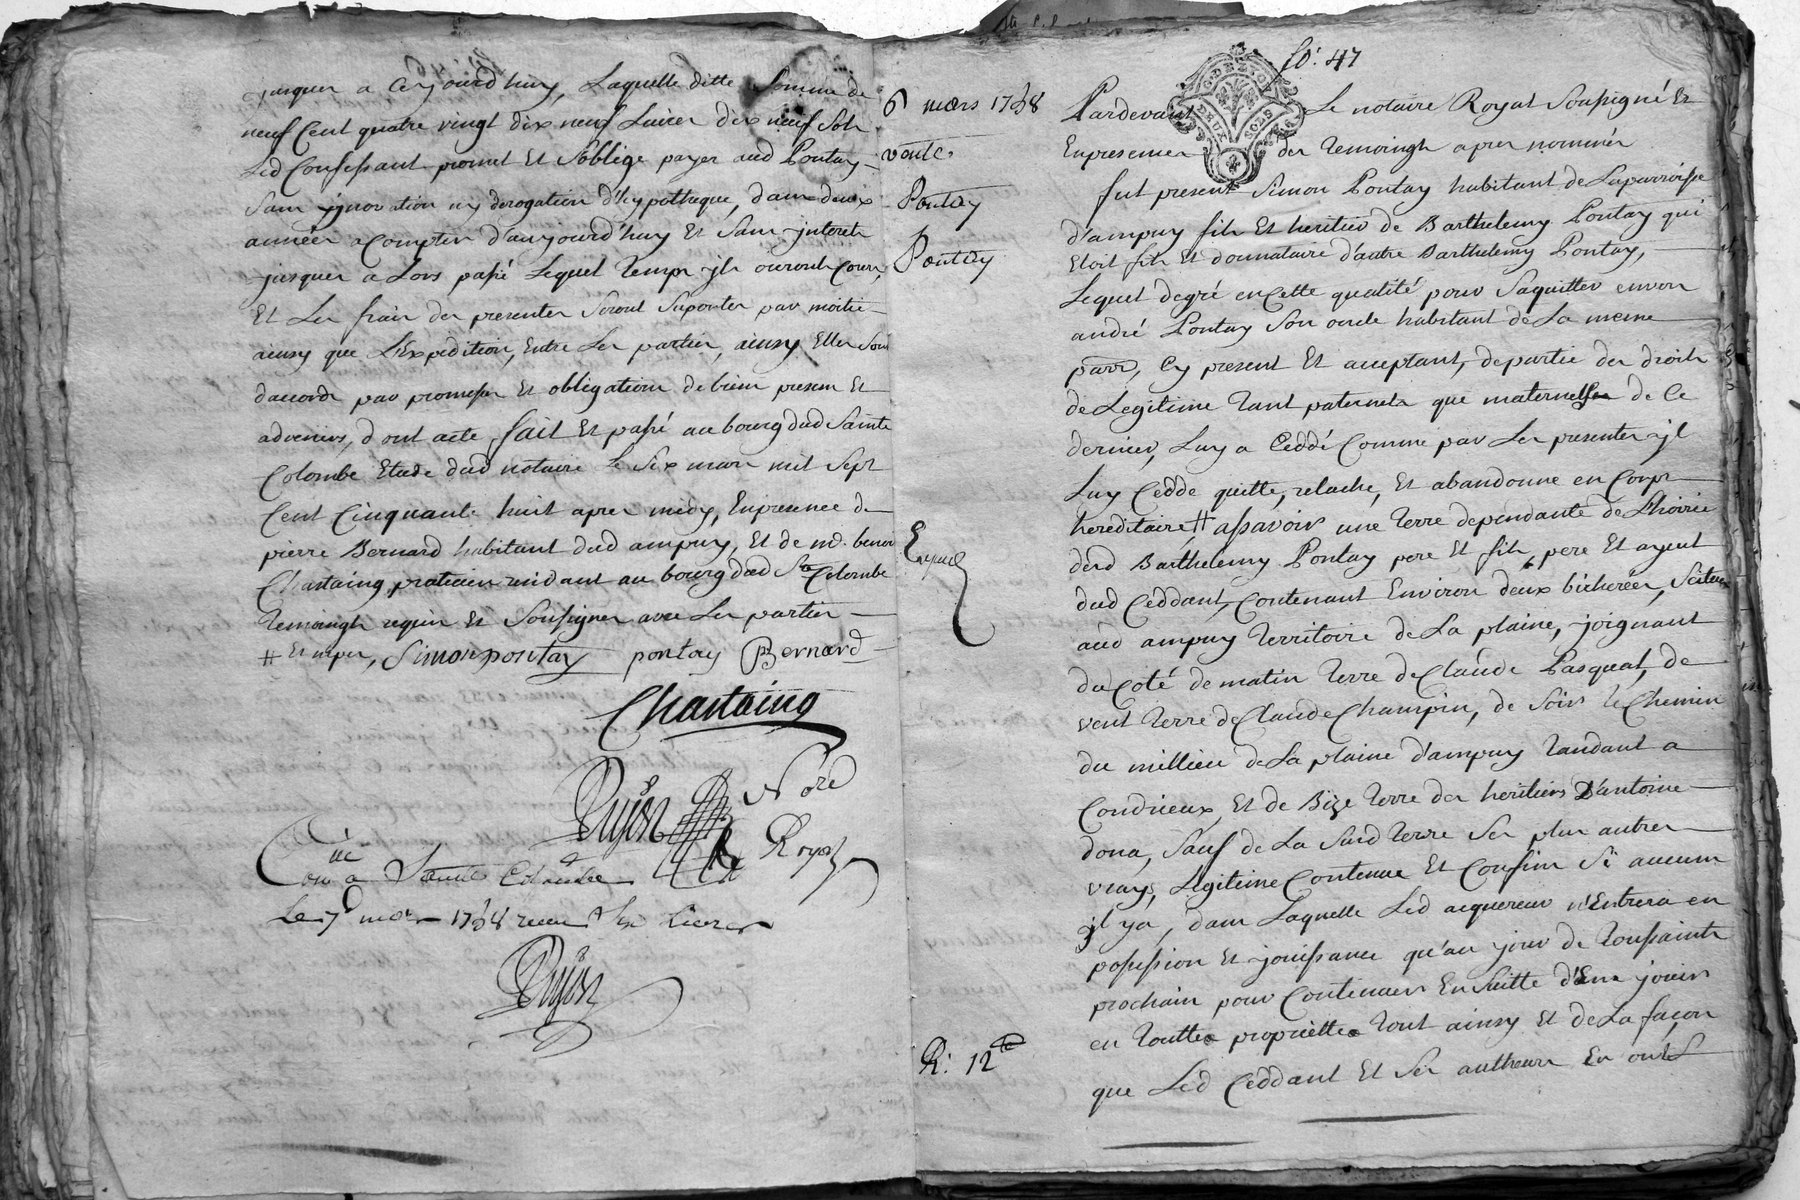 jusques a Cejourd'huy, Laquelle ditte Somme de
neuf Cent quatre vingt dix neuf Livres dix neuf Sols
Led Confessant promet Et S'oblige payer aud Pontay
Sans ynnovation ny derogation d'hypotheque, dans deux
années a Compter d'aujourd'huy Et Sans jnterets
jusques a Lors passé Lequel temps jls auront Cours,
Et Les frais des presentes Seront Suportés par moitié
ainsy que L'Expedition, Entre Les parties, ainsy Elles Sont
d'accords par promesses Et obligations de biens presens Et
advenirs, dont acte, fait Et passé au bourg dud Sainte
Colombe Etude dud notaire Le Six mars mil Sept
Cent Cinquante huit apres midy, Enpresence de
pierre Bernard habitant dud ampuy, Et de md. benoit
Chastaing praticien residant au bourg dud Ste Colombe
temoingts requis Et Soussignes avec Les parties
# Simon pontay pontay Bernard
Chastaing
Dujon Nore
Royal
Con a Sainte Colombe
Le 7 mars 1758 receu Livres
Dujon
fo: 47
G. DE LYON
DEUX SOLS
6 mars 1758
vente.
Pontay
Pontay
Pardevant Le notaire Royal Soussigné Et
Enpresence des temoingts apres nommés
fut present Simon Pontay habitant de La parroisse
d'ampuy fils Et heritier de Barthelemy Pontay qui
Etoit fils Et donnataire d'autre Barthelemy Pontay,
Lequel degré en Cette qualité pour S'aquitter envers
andré Pontay Son oncle habitant de La meme
parr, Cy present Et acceptant, de partie des droits
de Legitime tant paternels que maternelle de Ce
dernier, Luy a Ceddé Comme par Les presentes jl
Luy Cedde quitte, relache, Et abandonne en Corps
hereditaire # assavoir une terre dependante de L'hoirie
desd Barthelemy Pontay pere Et fils, pere Et ayeul
dud Ceddant, Contenant Environ deux bicherées, Scituée
aud ampuy territoire de La plaine, joignant
du Coté de matin terre de Claude Pasqual, de
vent terre de Claude Champin, de Soir Le Chemin
du millieu de La plaine d'ampuy tandant a
Condrieux, Et de Bize terre des heritiers D'antoine
dona, Sauf de La Susd terre Ses plus autres
vrays, Legitime Contenue Et Confins Si aucuns
jl y a, dans Laquelle Led acquereur n'Entrera en
possession Et jouissance qu'au jour de toussaints
prochain pour Continuer Ensuitte d'En jouir
en toutte proprieté tout ainsy Et de La façon
que Led Ceddant Et Ses autheurs En ont
R: 12